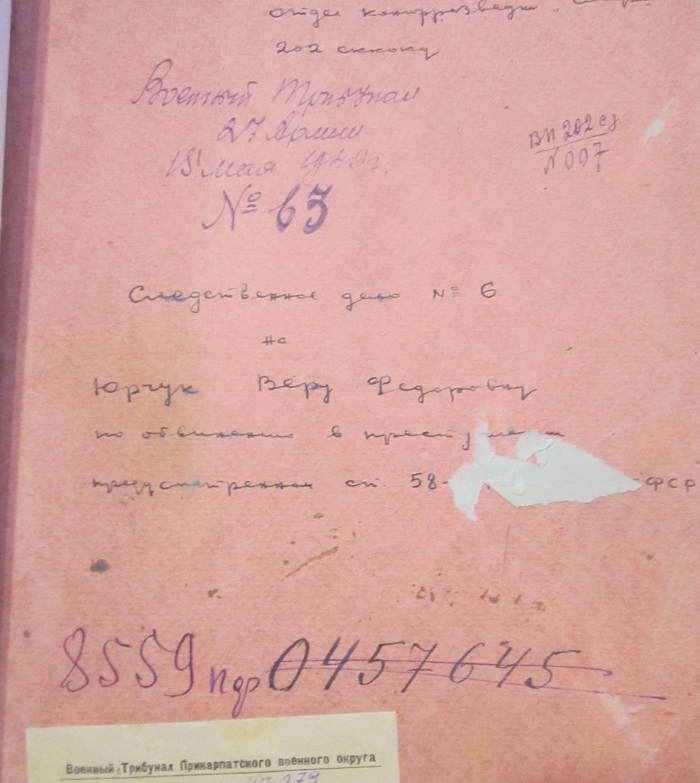 отдел контрразведки "Смер
202 сккокд
Военный Трибунал
27 Армии
мая
№ 63
ВП 202 сд
N 007
Следственное дело № 6
на
Юрчук Веру Федоровну
по обвинению в преступлении
предусмотренном ст. 58- ФСР
8559 пдр 0457645
Военный Трибунал Прикарпатского военного округа
279